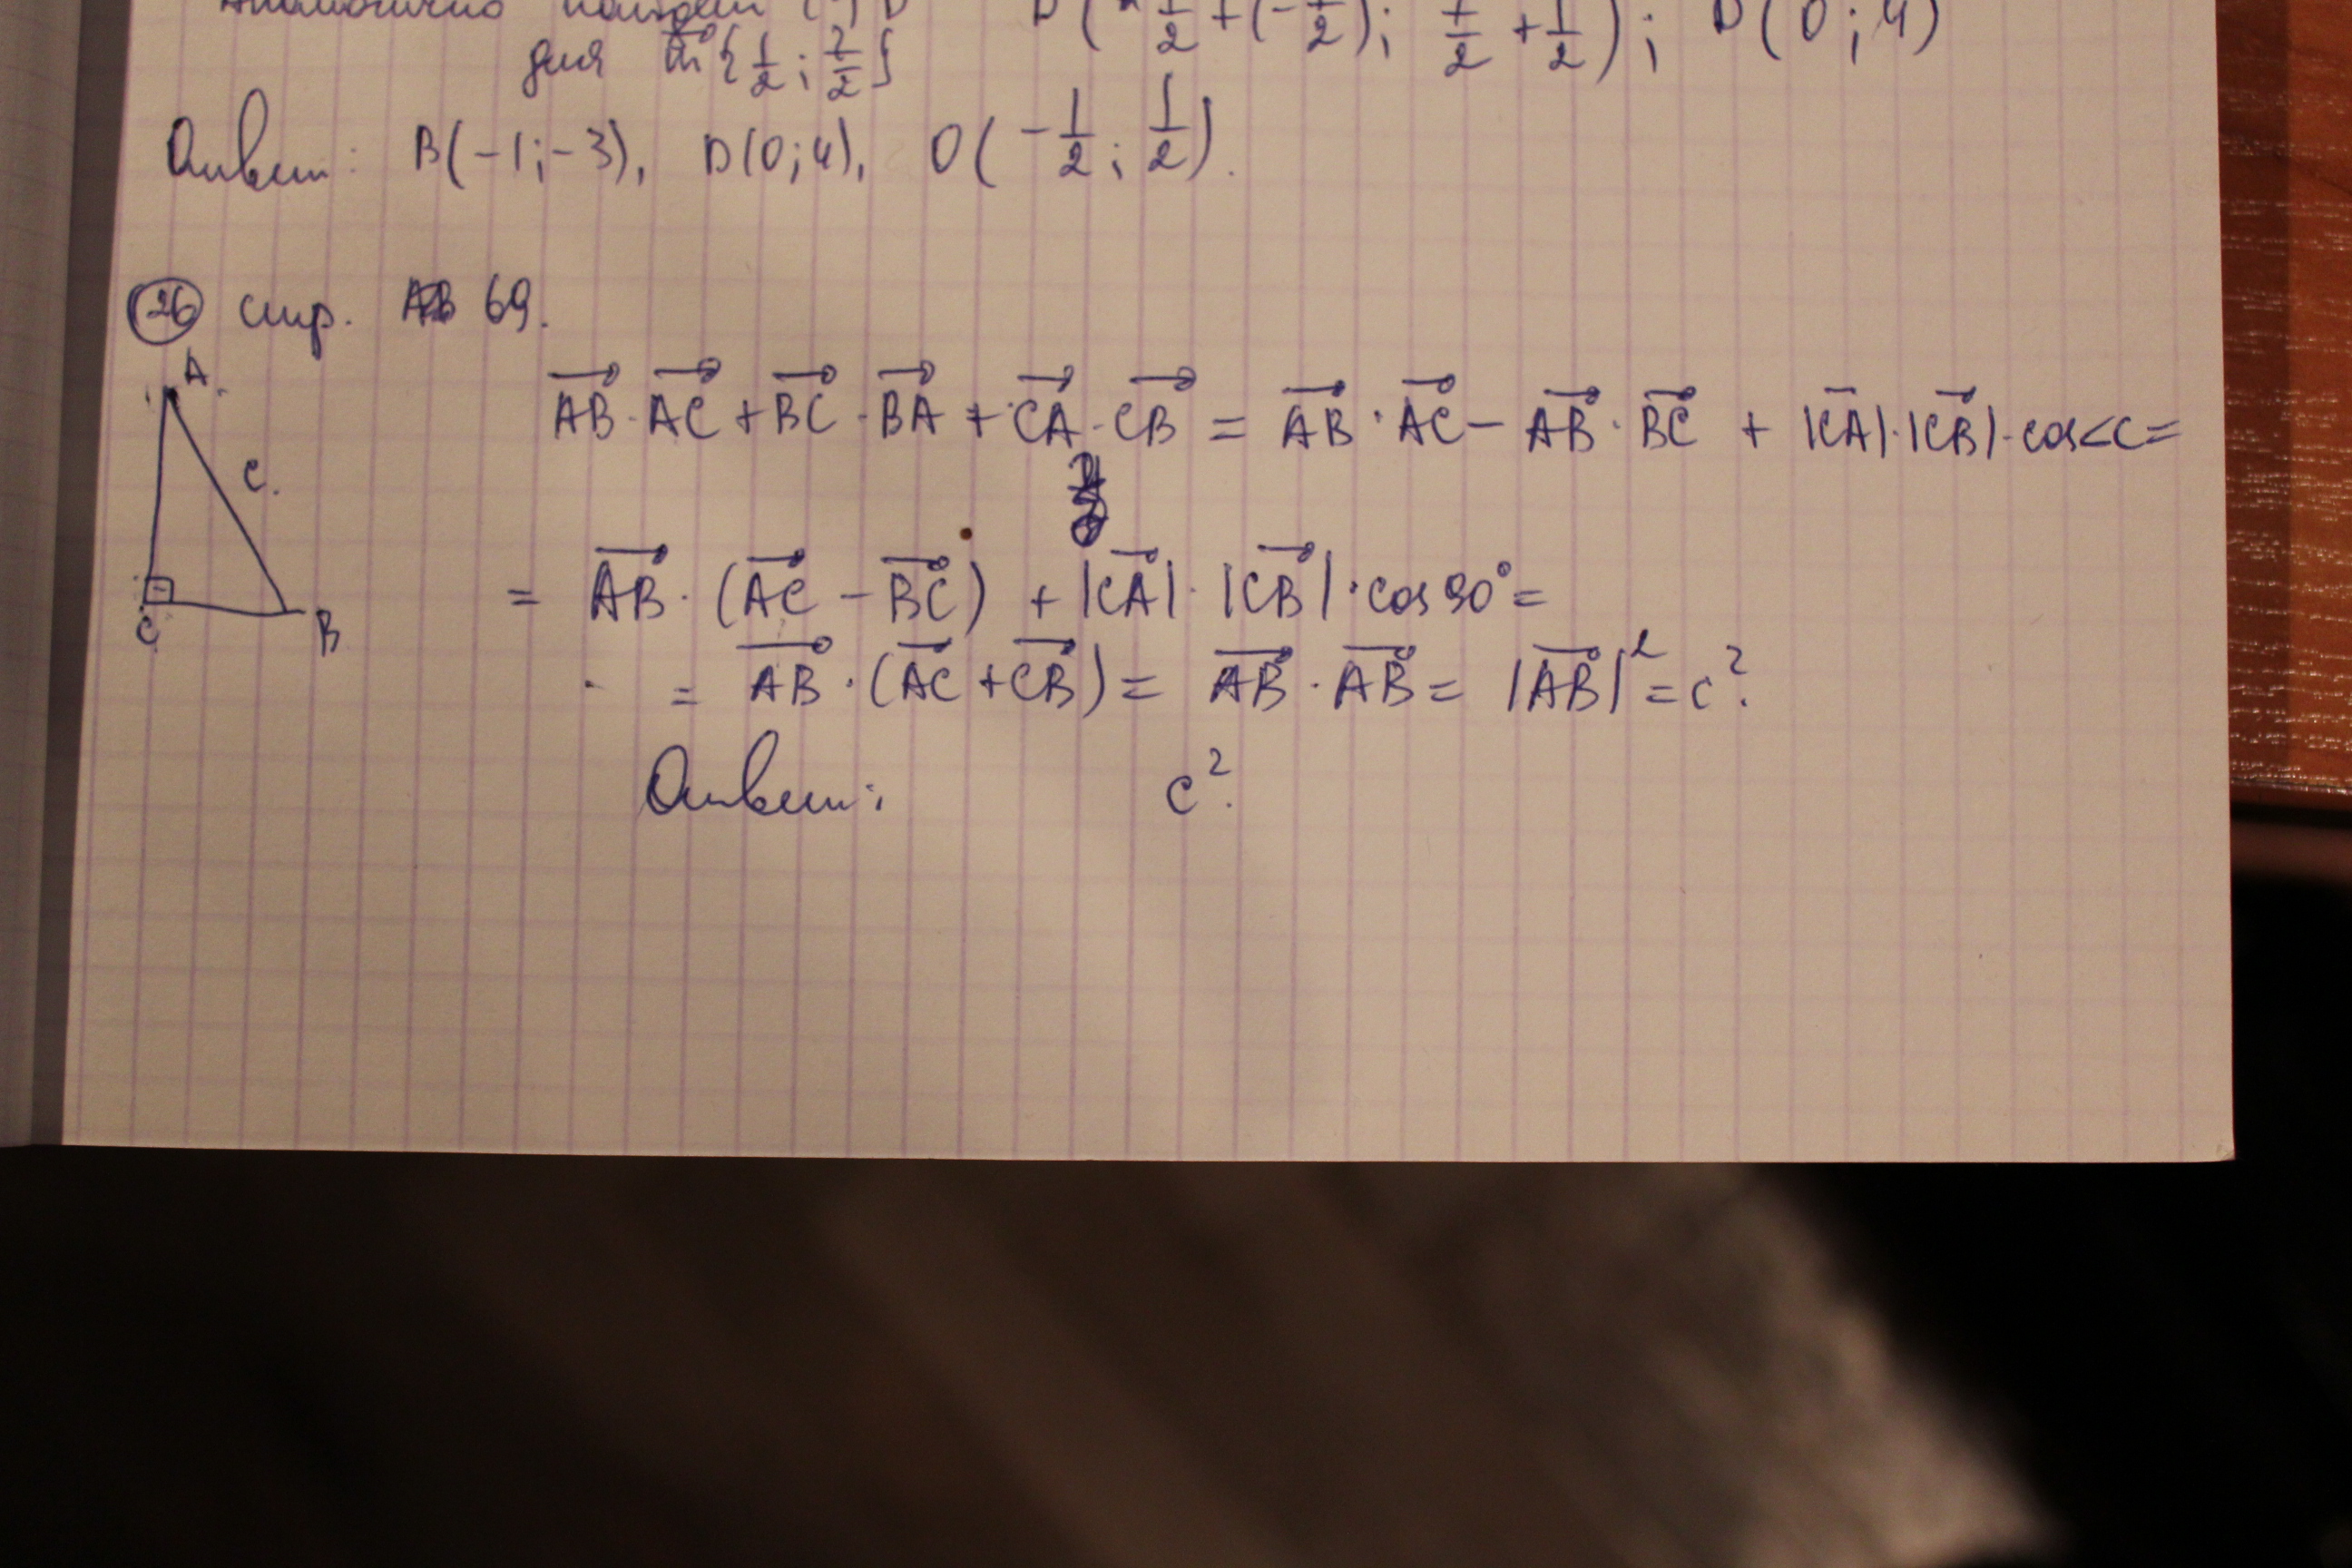 Аналогично найдём (·) D D(-1/2 + (-1/2); 7/2 + 1/2); D(0; 4)
для m⃗ {1/2; 7/2}
Ответ: B(-1; -3), D(0; 4), O(-1/2; 1/2).
26 стр. 69.
A
AB⃗ · AC⃗ + BC⃗ · BA⃗ + CA⃗ · CB⃗ = AB⃗ · AC⃗ - AB⃗ · BC⃗ + |CA⃗| · |CB⃗| · cos<C =
c.
= AB⃗ · (AC⃗ - BC⃗) + |CA⃗| · |CB⃗| · cos 90° =
C B
= AB⃗ · (AC⃗ + CB⃗) = AB⃗ · AB⃗ = |AB⃗|² = c².
Ответ: c².